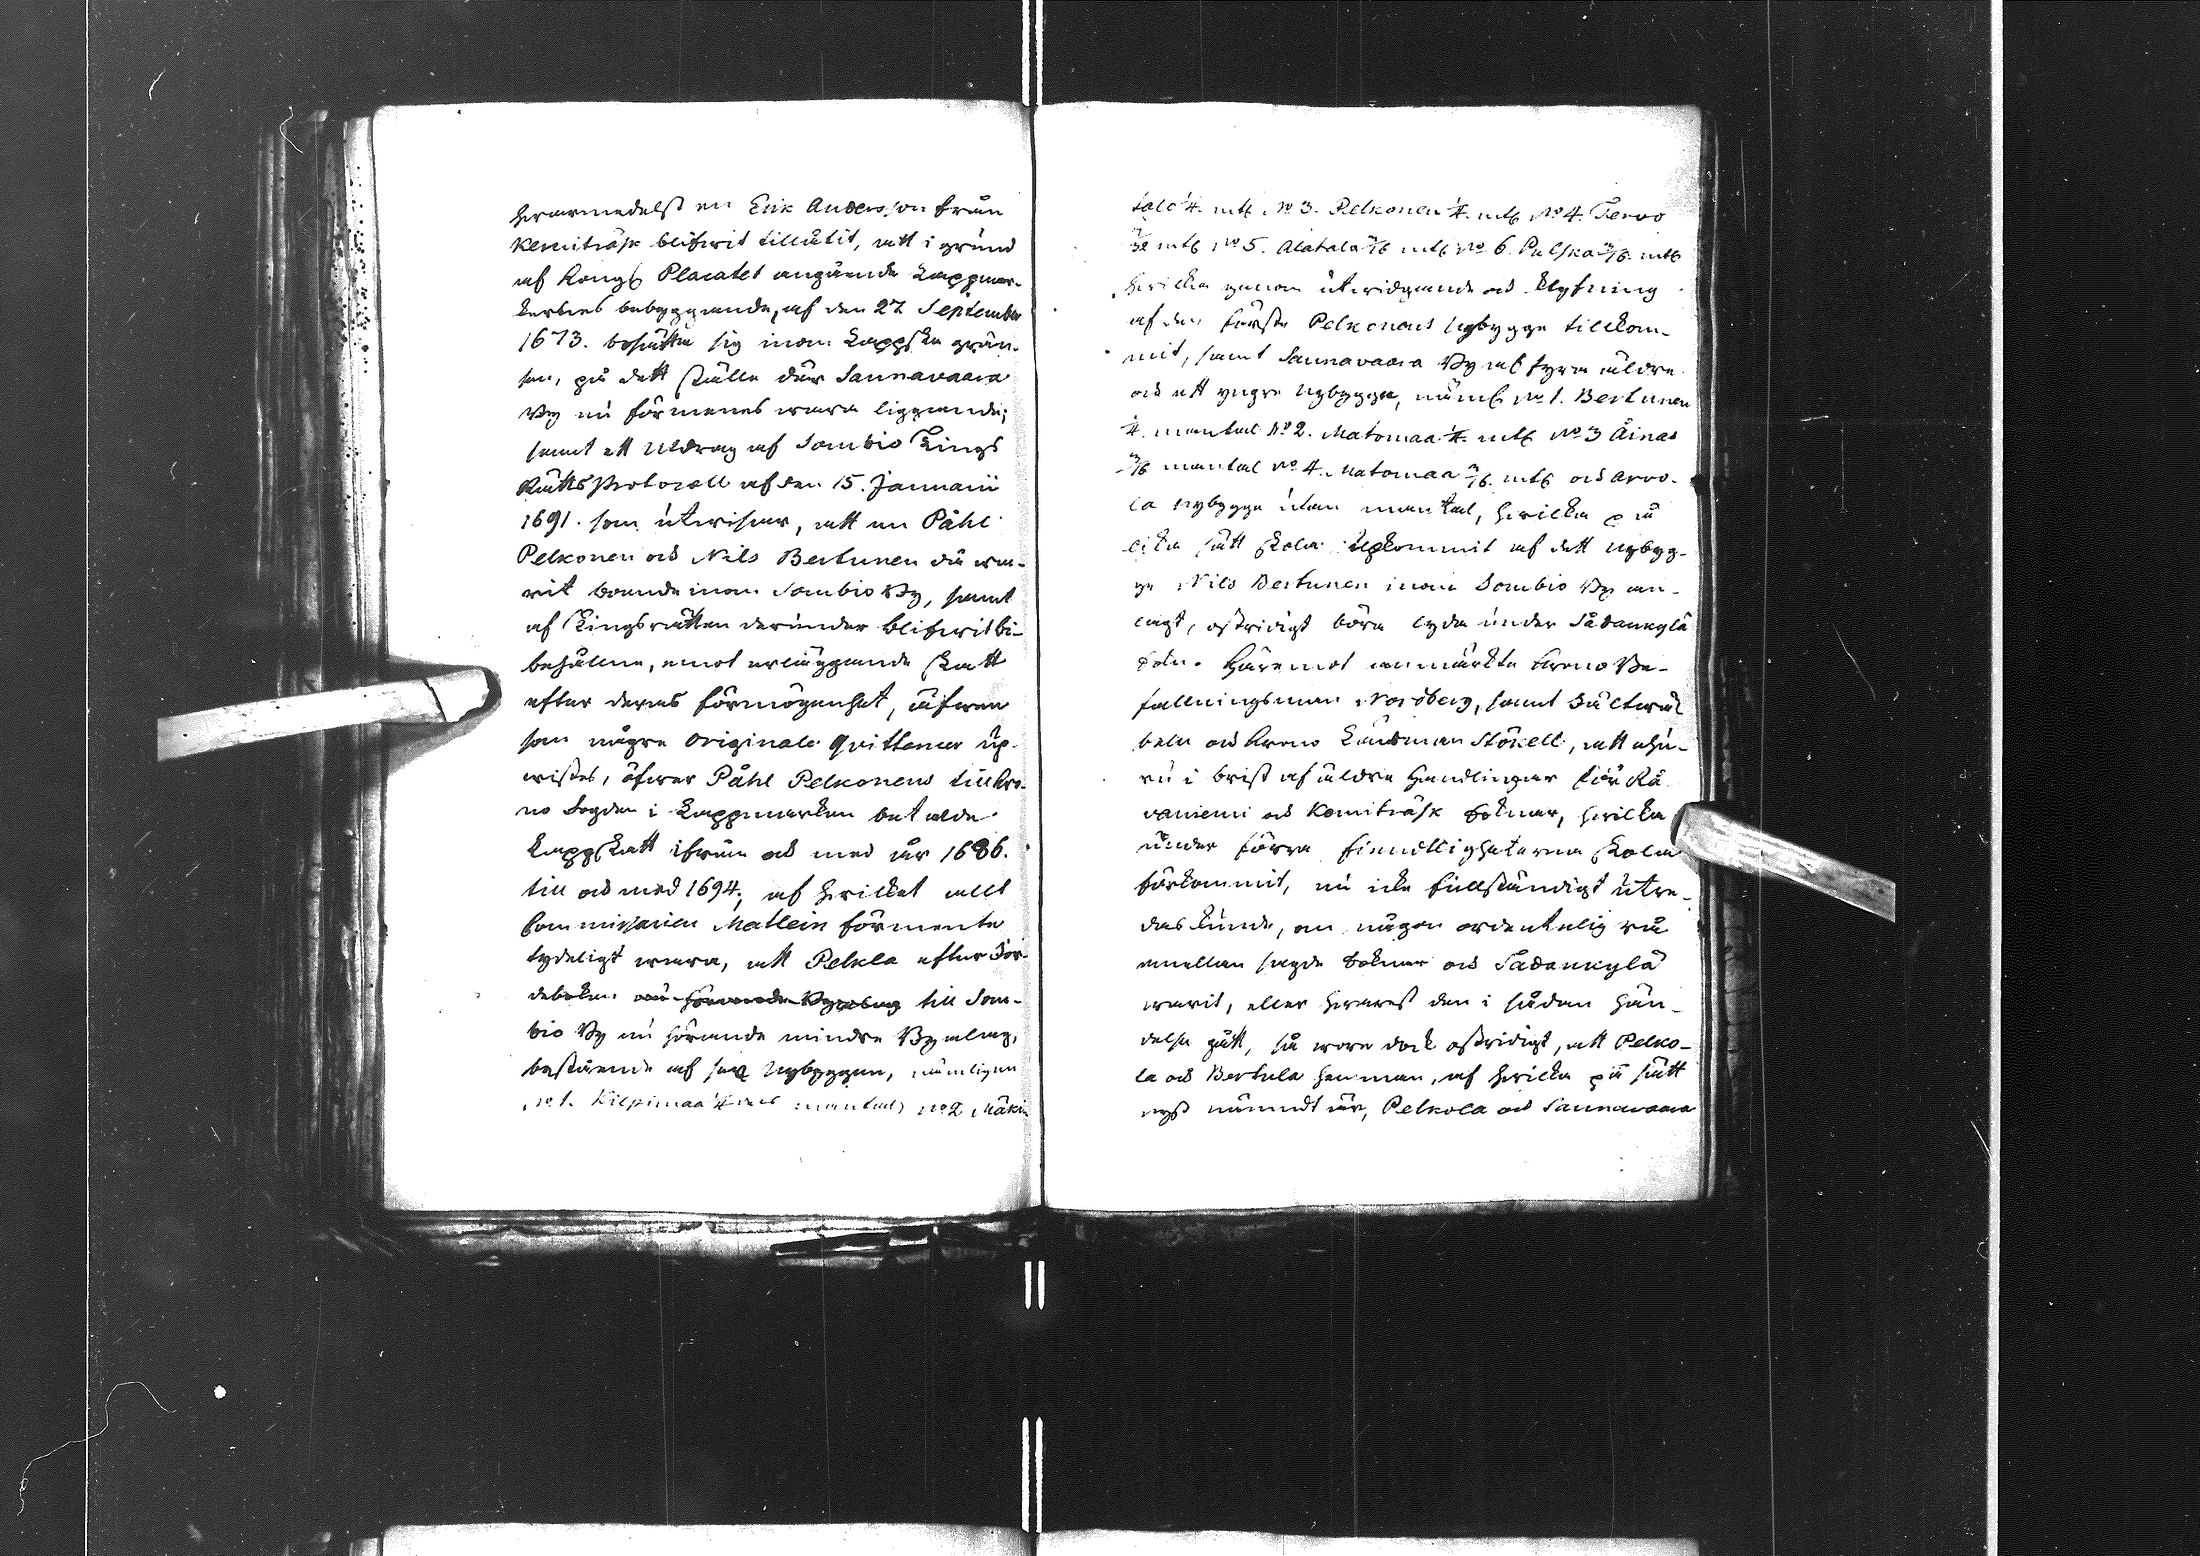 hwarmedelst en Erik Andersson från
Kemiträsk blifwit tillåtit, att i grund
af Kongl Placatet angående Lappmar-
kernes bebyggande, af den 27 September
1673. bosätta sig inom Lappska grän-
sen, på dett ställe där Saunavaara
By nu förmenes wara liggande;
samt ett Utdrag af Sombio Tings
Rätts Protocoll af den 15. Januarii
1691. som utwisar, att en Påhl
Pelkonen och Nils Bertunen då wa-
rit boende inom Sombio By, samt
af Tingsrätten derunder blifwit bi-
behållne, emot erläggande Skatt
efter deras förmögenhet, äfwen
som några Originale Qvittencer up-
wistes, öfwer Påhl Pelkonens till Kro-
no Fogden i Lappmarken betalde
Lappskatt ifrån och med år 1686.
till och med 1694, af hwilket allt
Commissarien Matlein förmente
tydeligt wara, att Pelkla efter Jor-
deboken nu hörande Byalag till Som-
bio By nu hörande mindre Byalag,
bestående af sex Nybyggen, nämligen
No 1. Kilpimaa 1/4 dels mantal, No 2 Mäkin
talo 1/4. mtl No 3. Pelkonen 1/4. mtl No 4. Tervo
3/32 mtl No 5. Alatalo 3/16 mtl No 6. Pulska 3/16. mtl
hwilka genom utwidgande och Klyfning
af den förste Pelkonens Nybygge tillkom-
mit, samt Saunavaara By af fyra äldre
och ett yngre Nybygge, näml No 1. Bertunen
1/4. mantal No 2. Matomaa 1/4. mtl No 3 Äinas
3/16 mantal No 4. Matomaa 3/16. mtl och Arvo-
la Nybygge utan mantal, hwilka på
lika sätt skola upkommit af dett Nybyg-
ge Nils Bertunen inom Sombio By an-
lagt, ostridigt böra lyda under Sådankylä
Sokn. Häremot anmärkte Krono Be-
fallningsman Nordberg, samt Fältwä
beln och Krono Länsman Stökell, att ehu-
ru i brist af äldre Handlingar för Rå
vaniemi och Kemiträsk Soknar, hwilka
under förra fiendtligheterna skola
förkommit, nu icke fullständigt utre-
das kunde, om någon ordentelig rå
emellan sagde Soknar och Sådankylä
warit, eller hwarest den i sådan hän-
delse gått, så wore dock ostridigt, att Pelko-
la och Bertula hemman, af hwilka på sätt
nyss nämndt är, Pelkola och Saunavaara